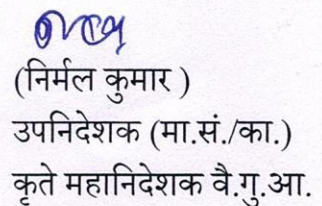 (निर्मल कुमार )
उपनिदेशक (मा.सं./का.)
कृते महानिदेशक वै.गु.आ.